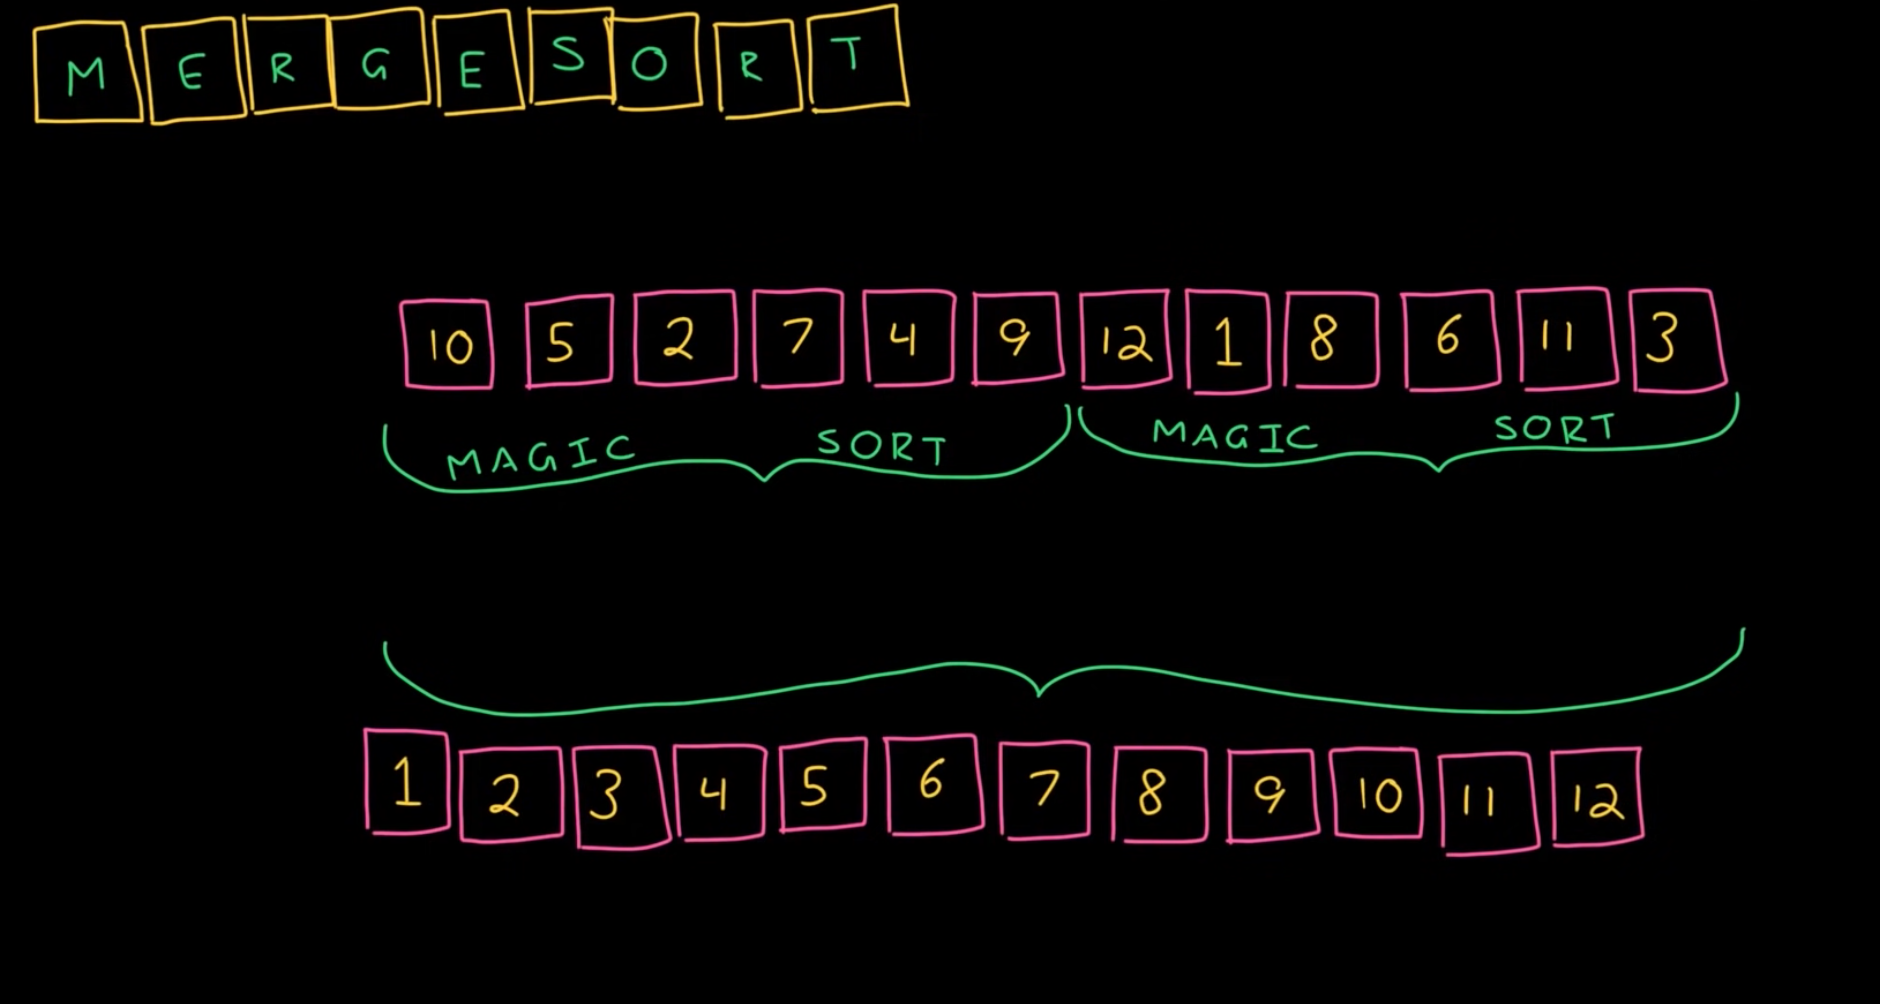 MERGESORT
10 5 2 7 4 9 12 1 8 6 11 3
MAGIC SORT MAGIC SORT
1 2 3 4 5 6 7 8 9 10 11 12